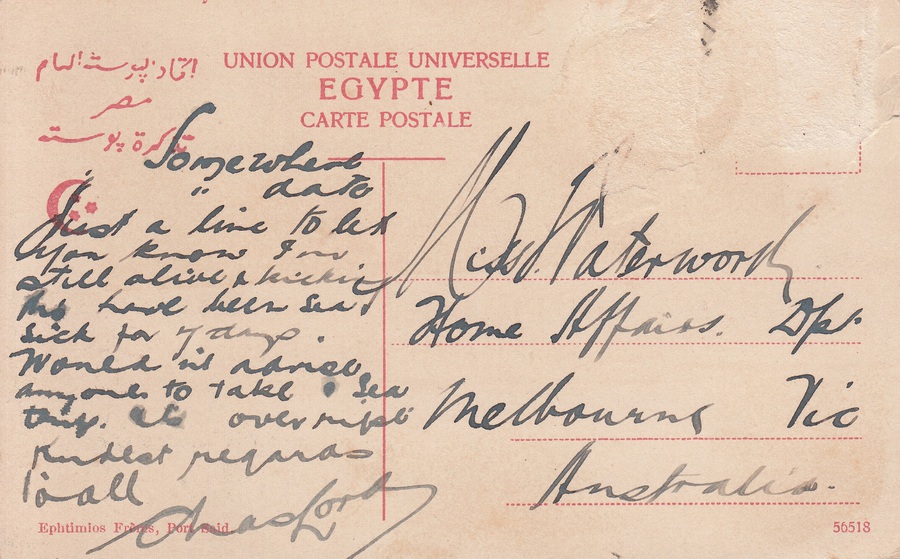 اتحاد پوسته العام
UNION POSTALE UNIVERSELLE
مصر
EGYPTE
تذكرة پوسته
CARTE POSTALE
Somewhere
" date
Just a line to let
you know I'm
still alive & kicking
have been sea
sick for 7 days.
Would n't advise
anyone to take a Sea
trip. over
Kindest regards
To all
Chas Lord
Miss J. Waterworth
Home Affairs. Dpt.
Melbourne Vic
Australia.
Ephtimios Frères, Port Said.
56518